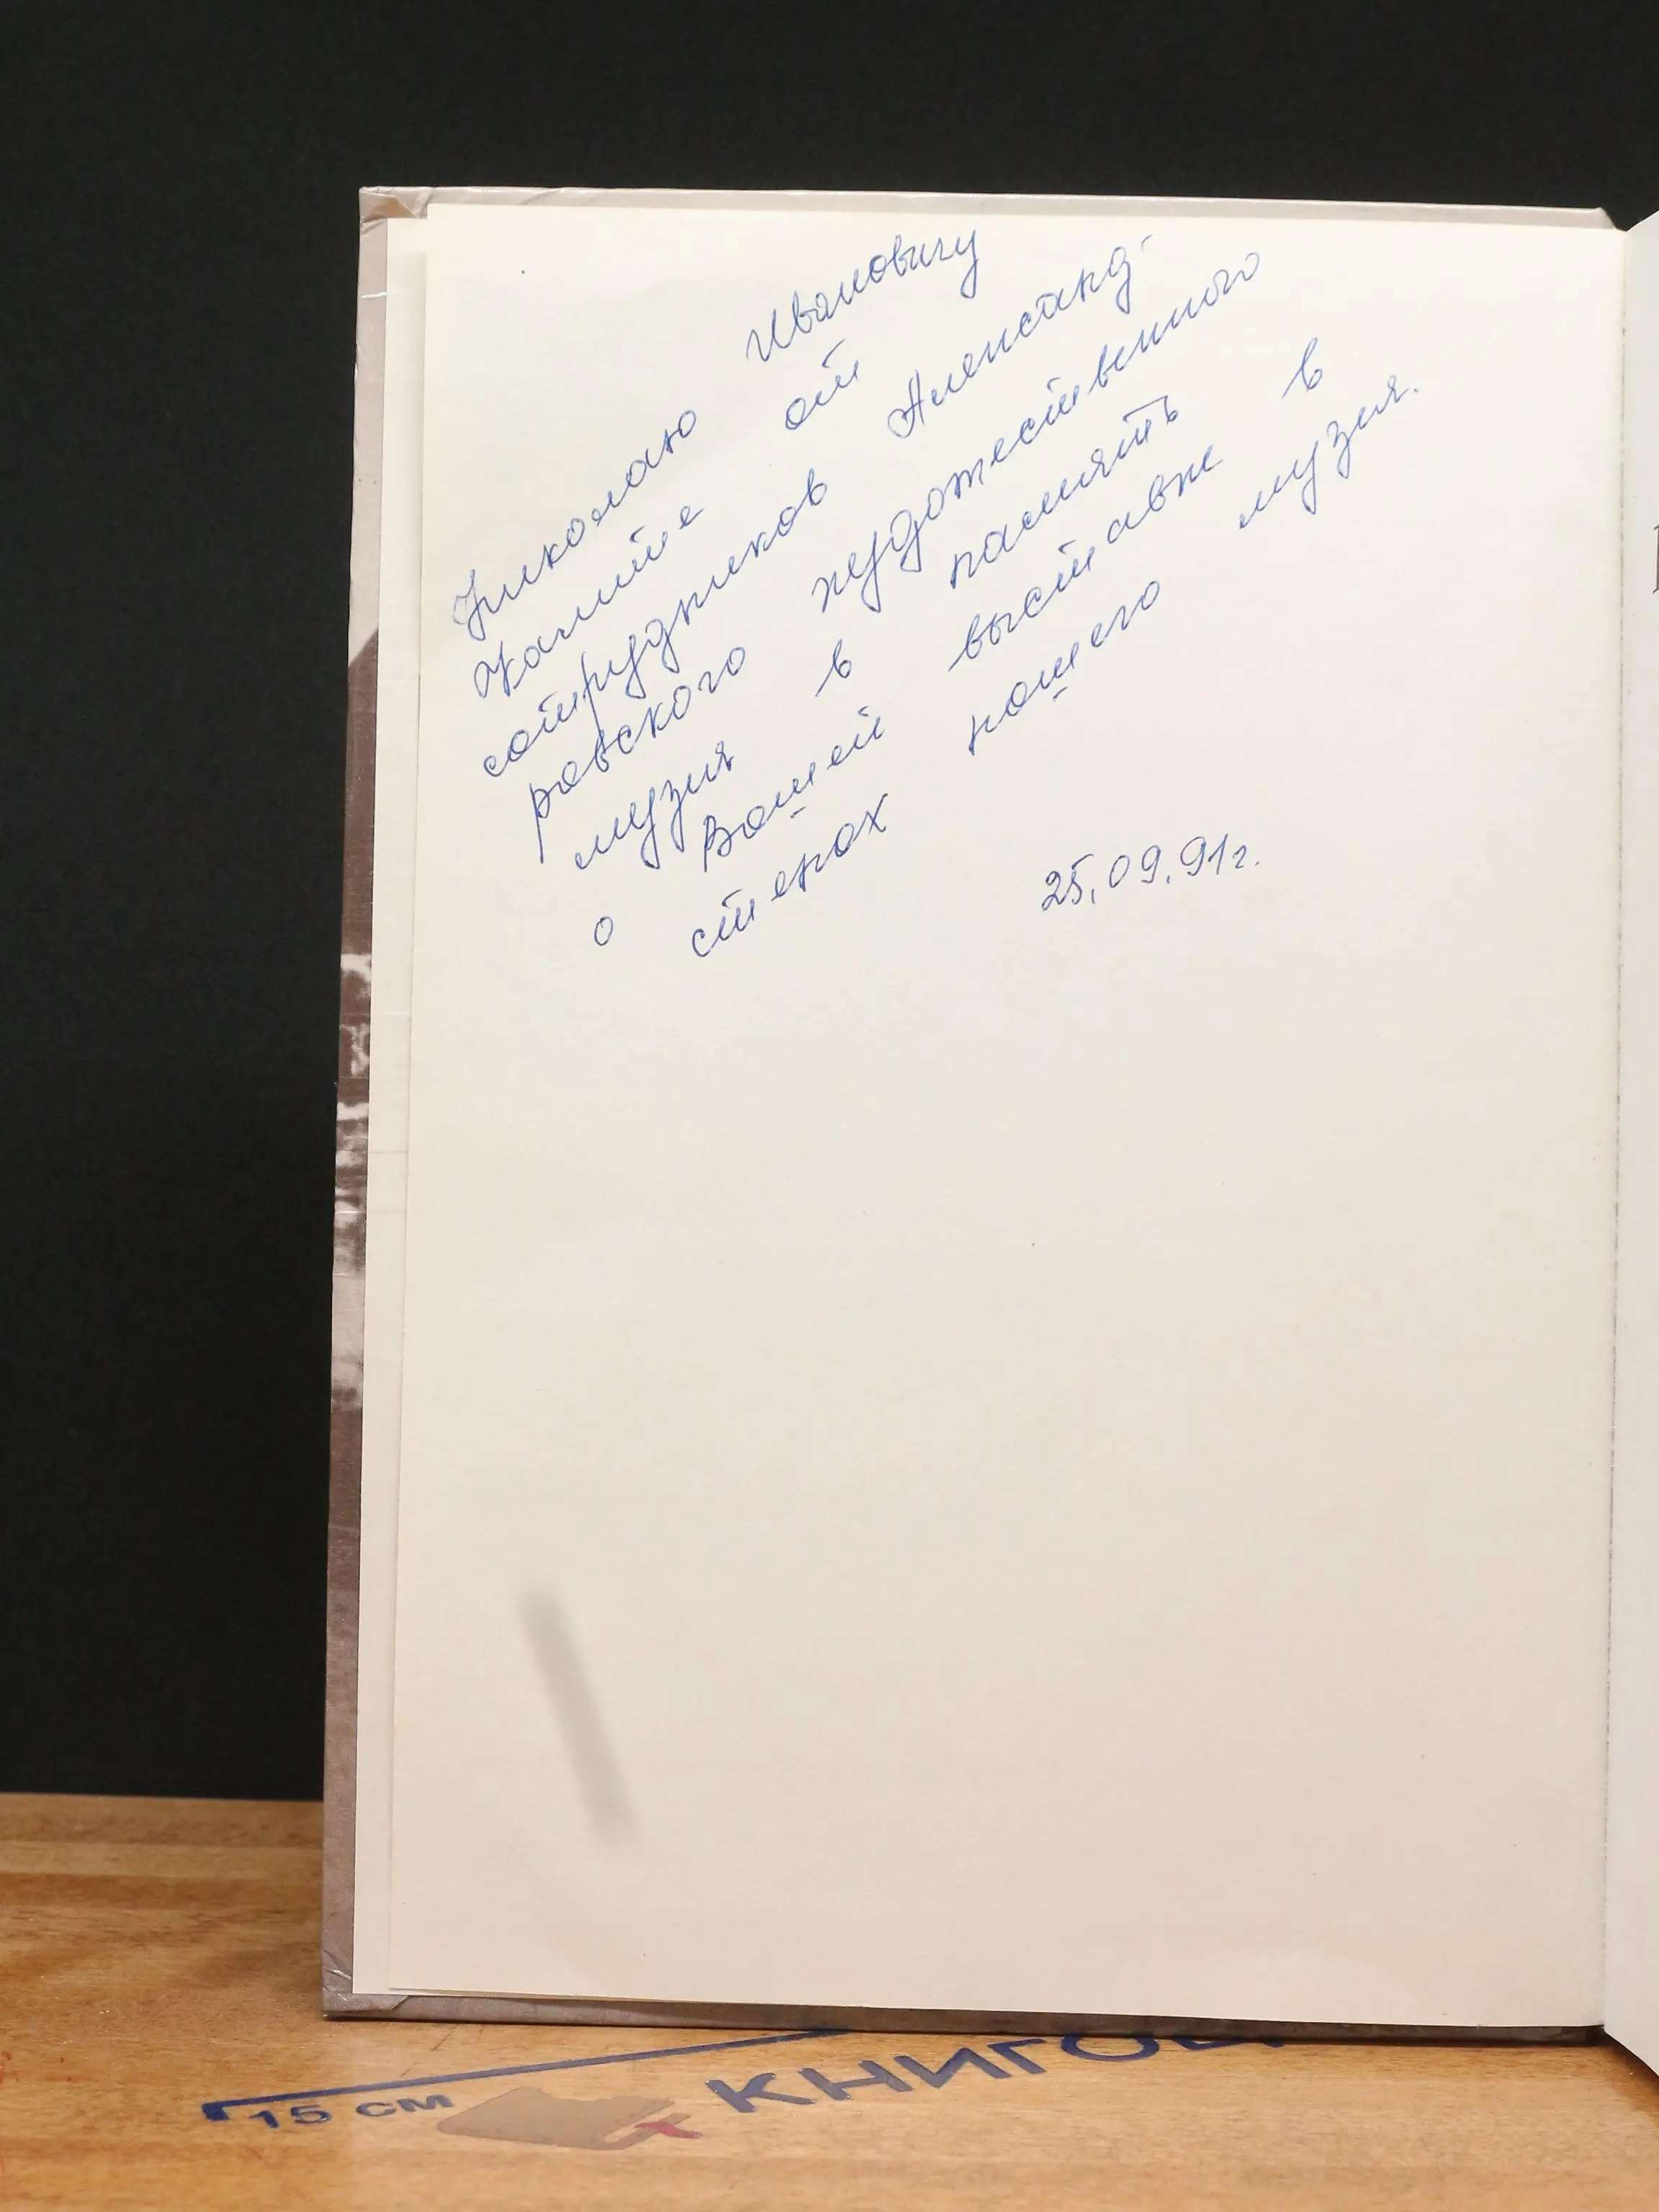 Николаю Ивановичу
Калите от
сотрудников Александ-
ровского художественного
музея в память
о Вашей выставке в
стенах нашего музея.
25.09.91г.
15 см